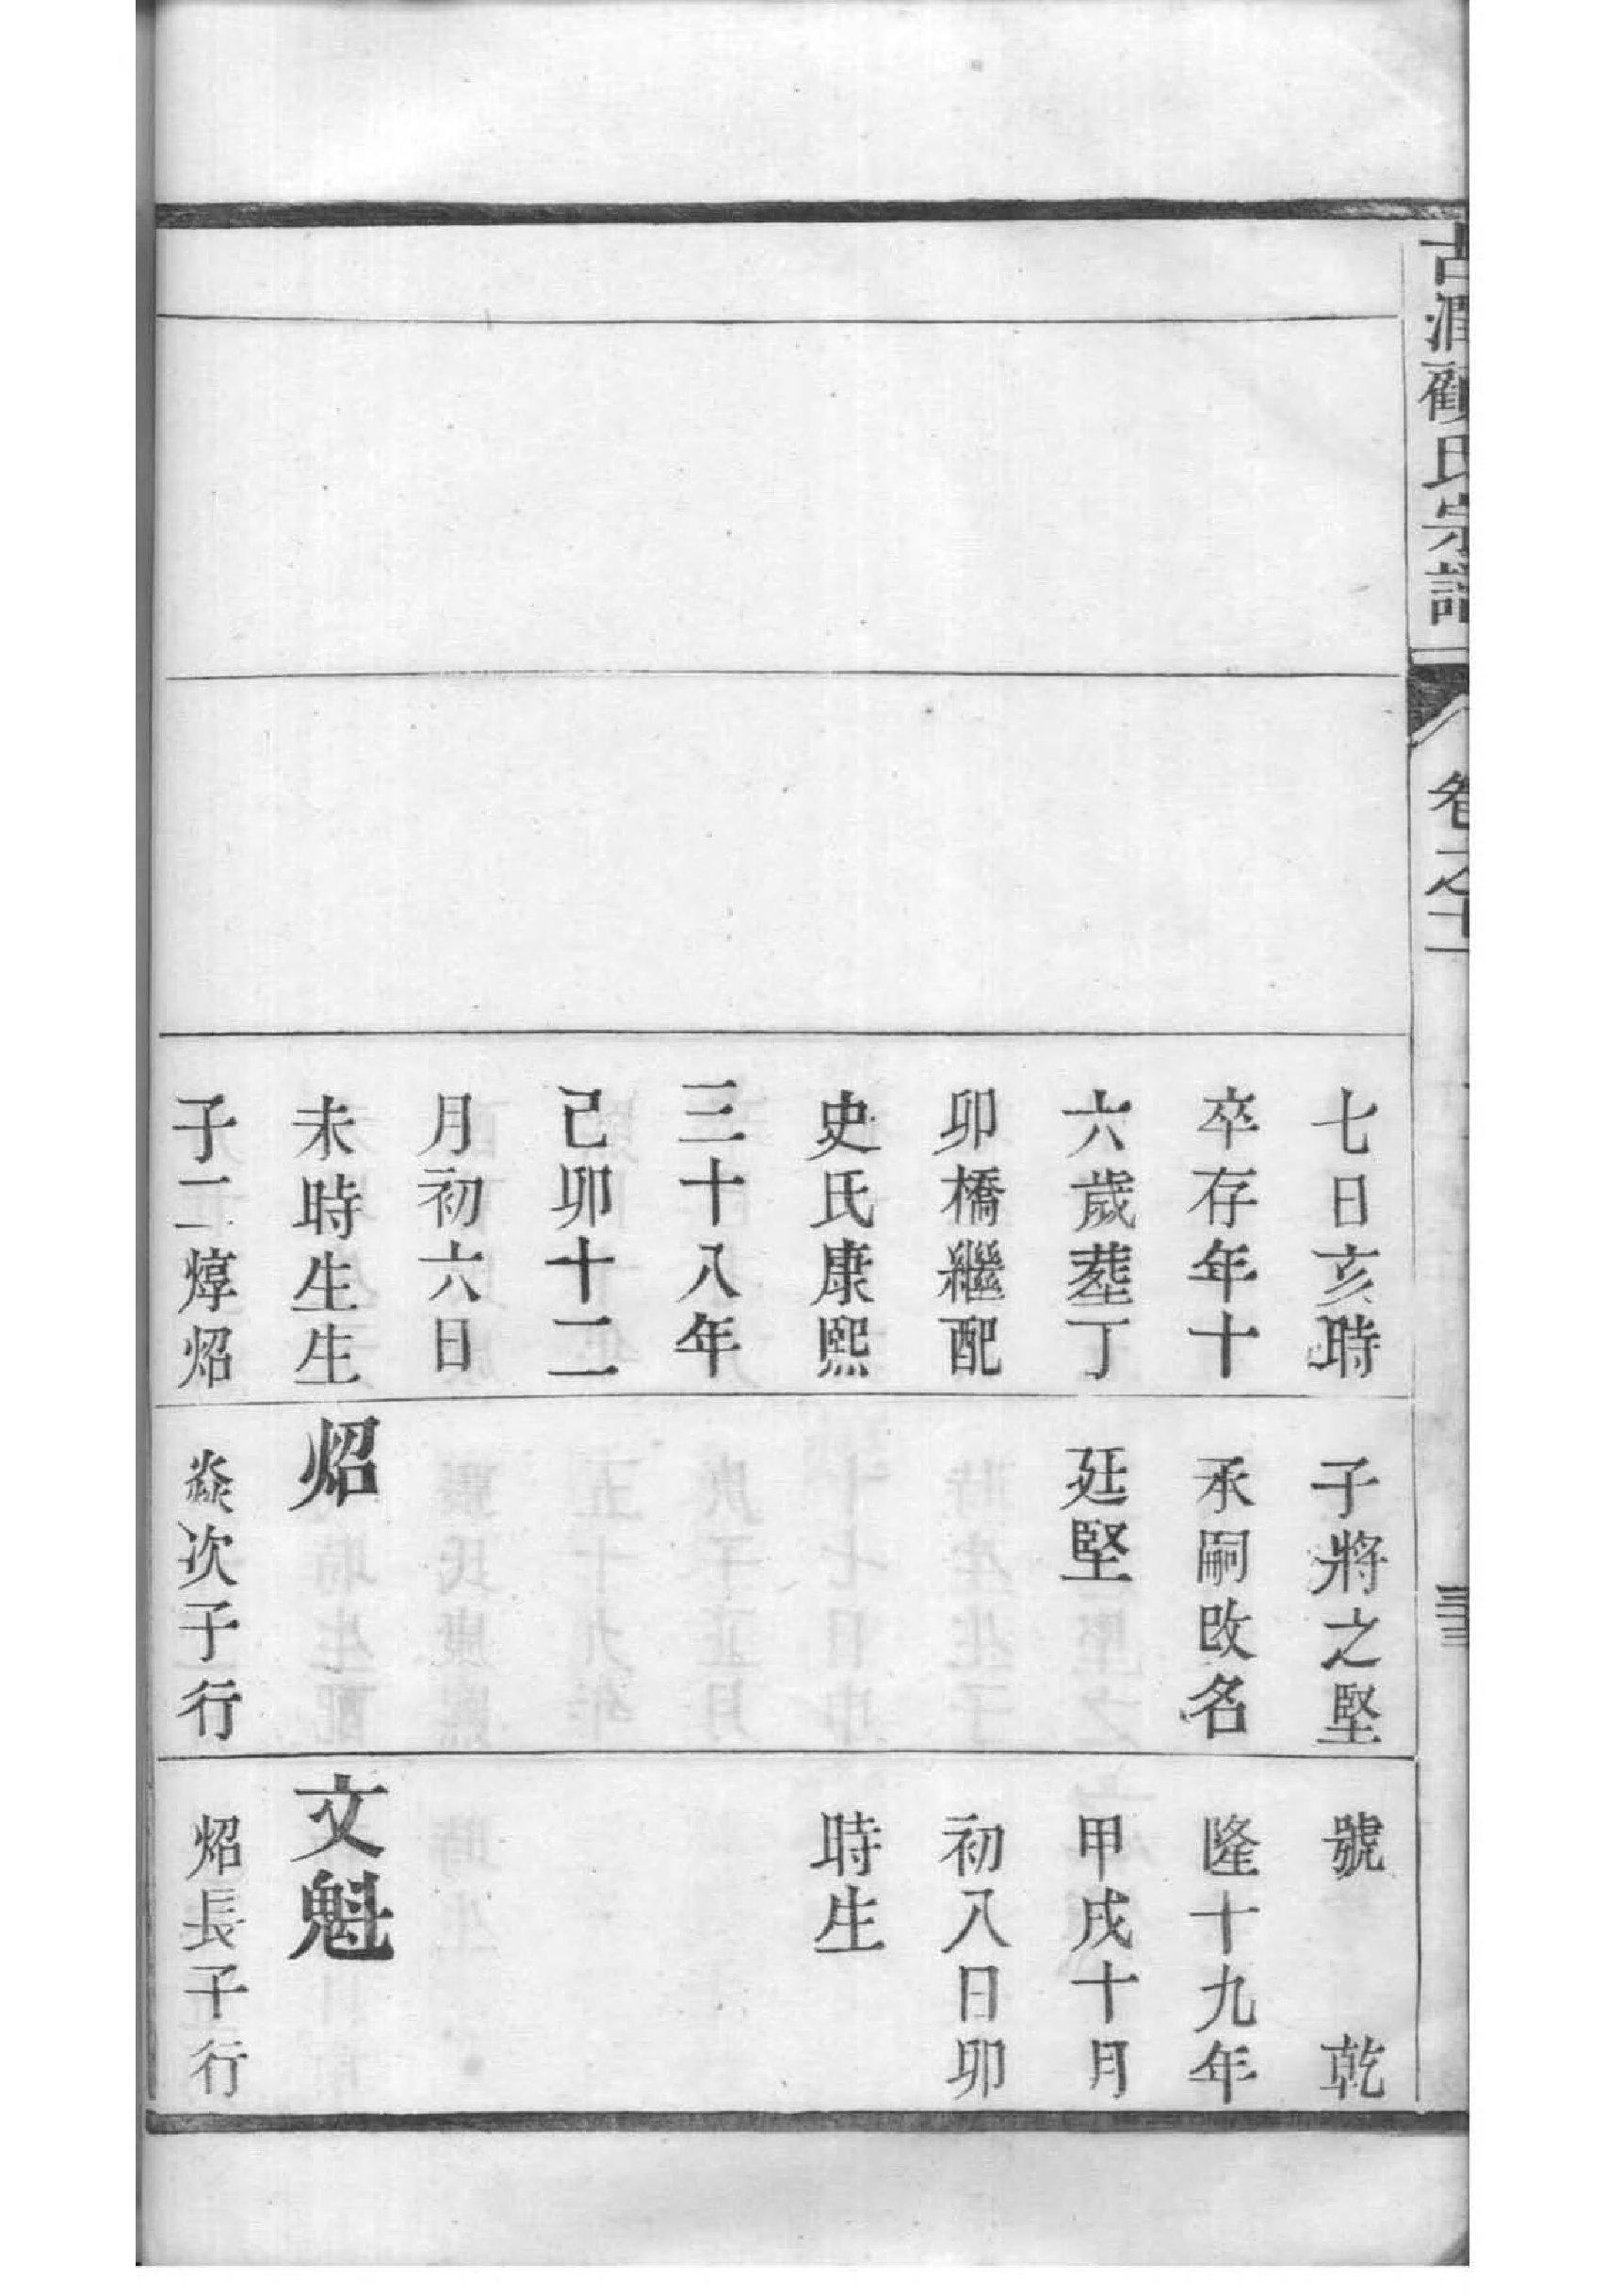 古潤顧氏宗譜
卷之十
七日亥時
卒存年十
六歲塟丁
卯橋繼配
史氏康熙
三十八年
己卯十二
月初六日
未時生生
子二焞炤
子將之堅
承嗣改名
廷堅
炤
焱次子行
號　乾
隆十九年
甲戌十月
初八日卯
時生
文魁
炤長子行